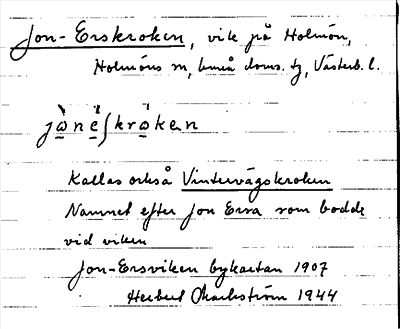 Jon-Erskroken, vik på Holmön,
Holmöns sn, Umeå doms. tg, Västerb. l.
jònèʃkroken
Kallas också Vintervägskroken
Namnet efter Jon Ersa som bodde
vid viken
Jon-Ersviken bykartan 1907
Herbert Markström 1944